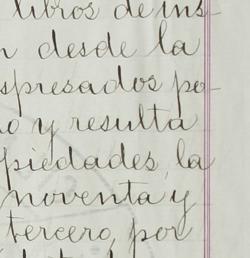 libros de ins-
n desde la
spresados po-
o y resulta
piedades, la
noventa y
tercero, por